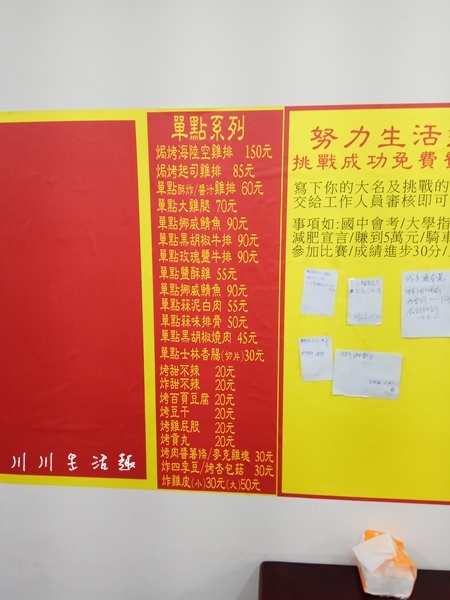 單點系列
焗烤海陸空雞排 150元
焗烤起司雞排 85元
單點酥炸/醬汁雞排 60元
單點大雞腿 70元
單點挪威鯖魚 90元
單點黑胡椒牛排 90元
單點玫瑰鹽牛排 90元
單點鹽酥雞 55元
單點挪威鯖魚 90元
單點蒜泥白肉 55元
單點蒜味排骨 50元
單點黑胡椒燒肉 45元
單點士林香腸(切片)30元
烤甜不辣 20元
炸甜不辣 20元
烤百頁豆腐 20元
烤豆干 20元
烤雞屁股 20元
烤貢丸 20元
烤肉醬薯條/麥克雞塊 30元
炸四季豆/烤杏包菇 30元
炸雞皮(小)30元(大)50元
努力生活
挑戰成功免費
寫下你的大名及挑戰的
交給工作人員審核即可
事項如:國中會考/大學指
減肥宣言/賺到5萬元/騎車
參加比賽/成績進步30分/
川川生活趣